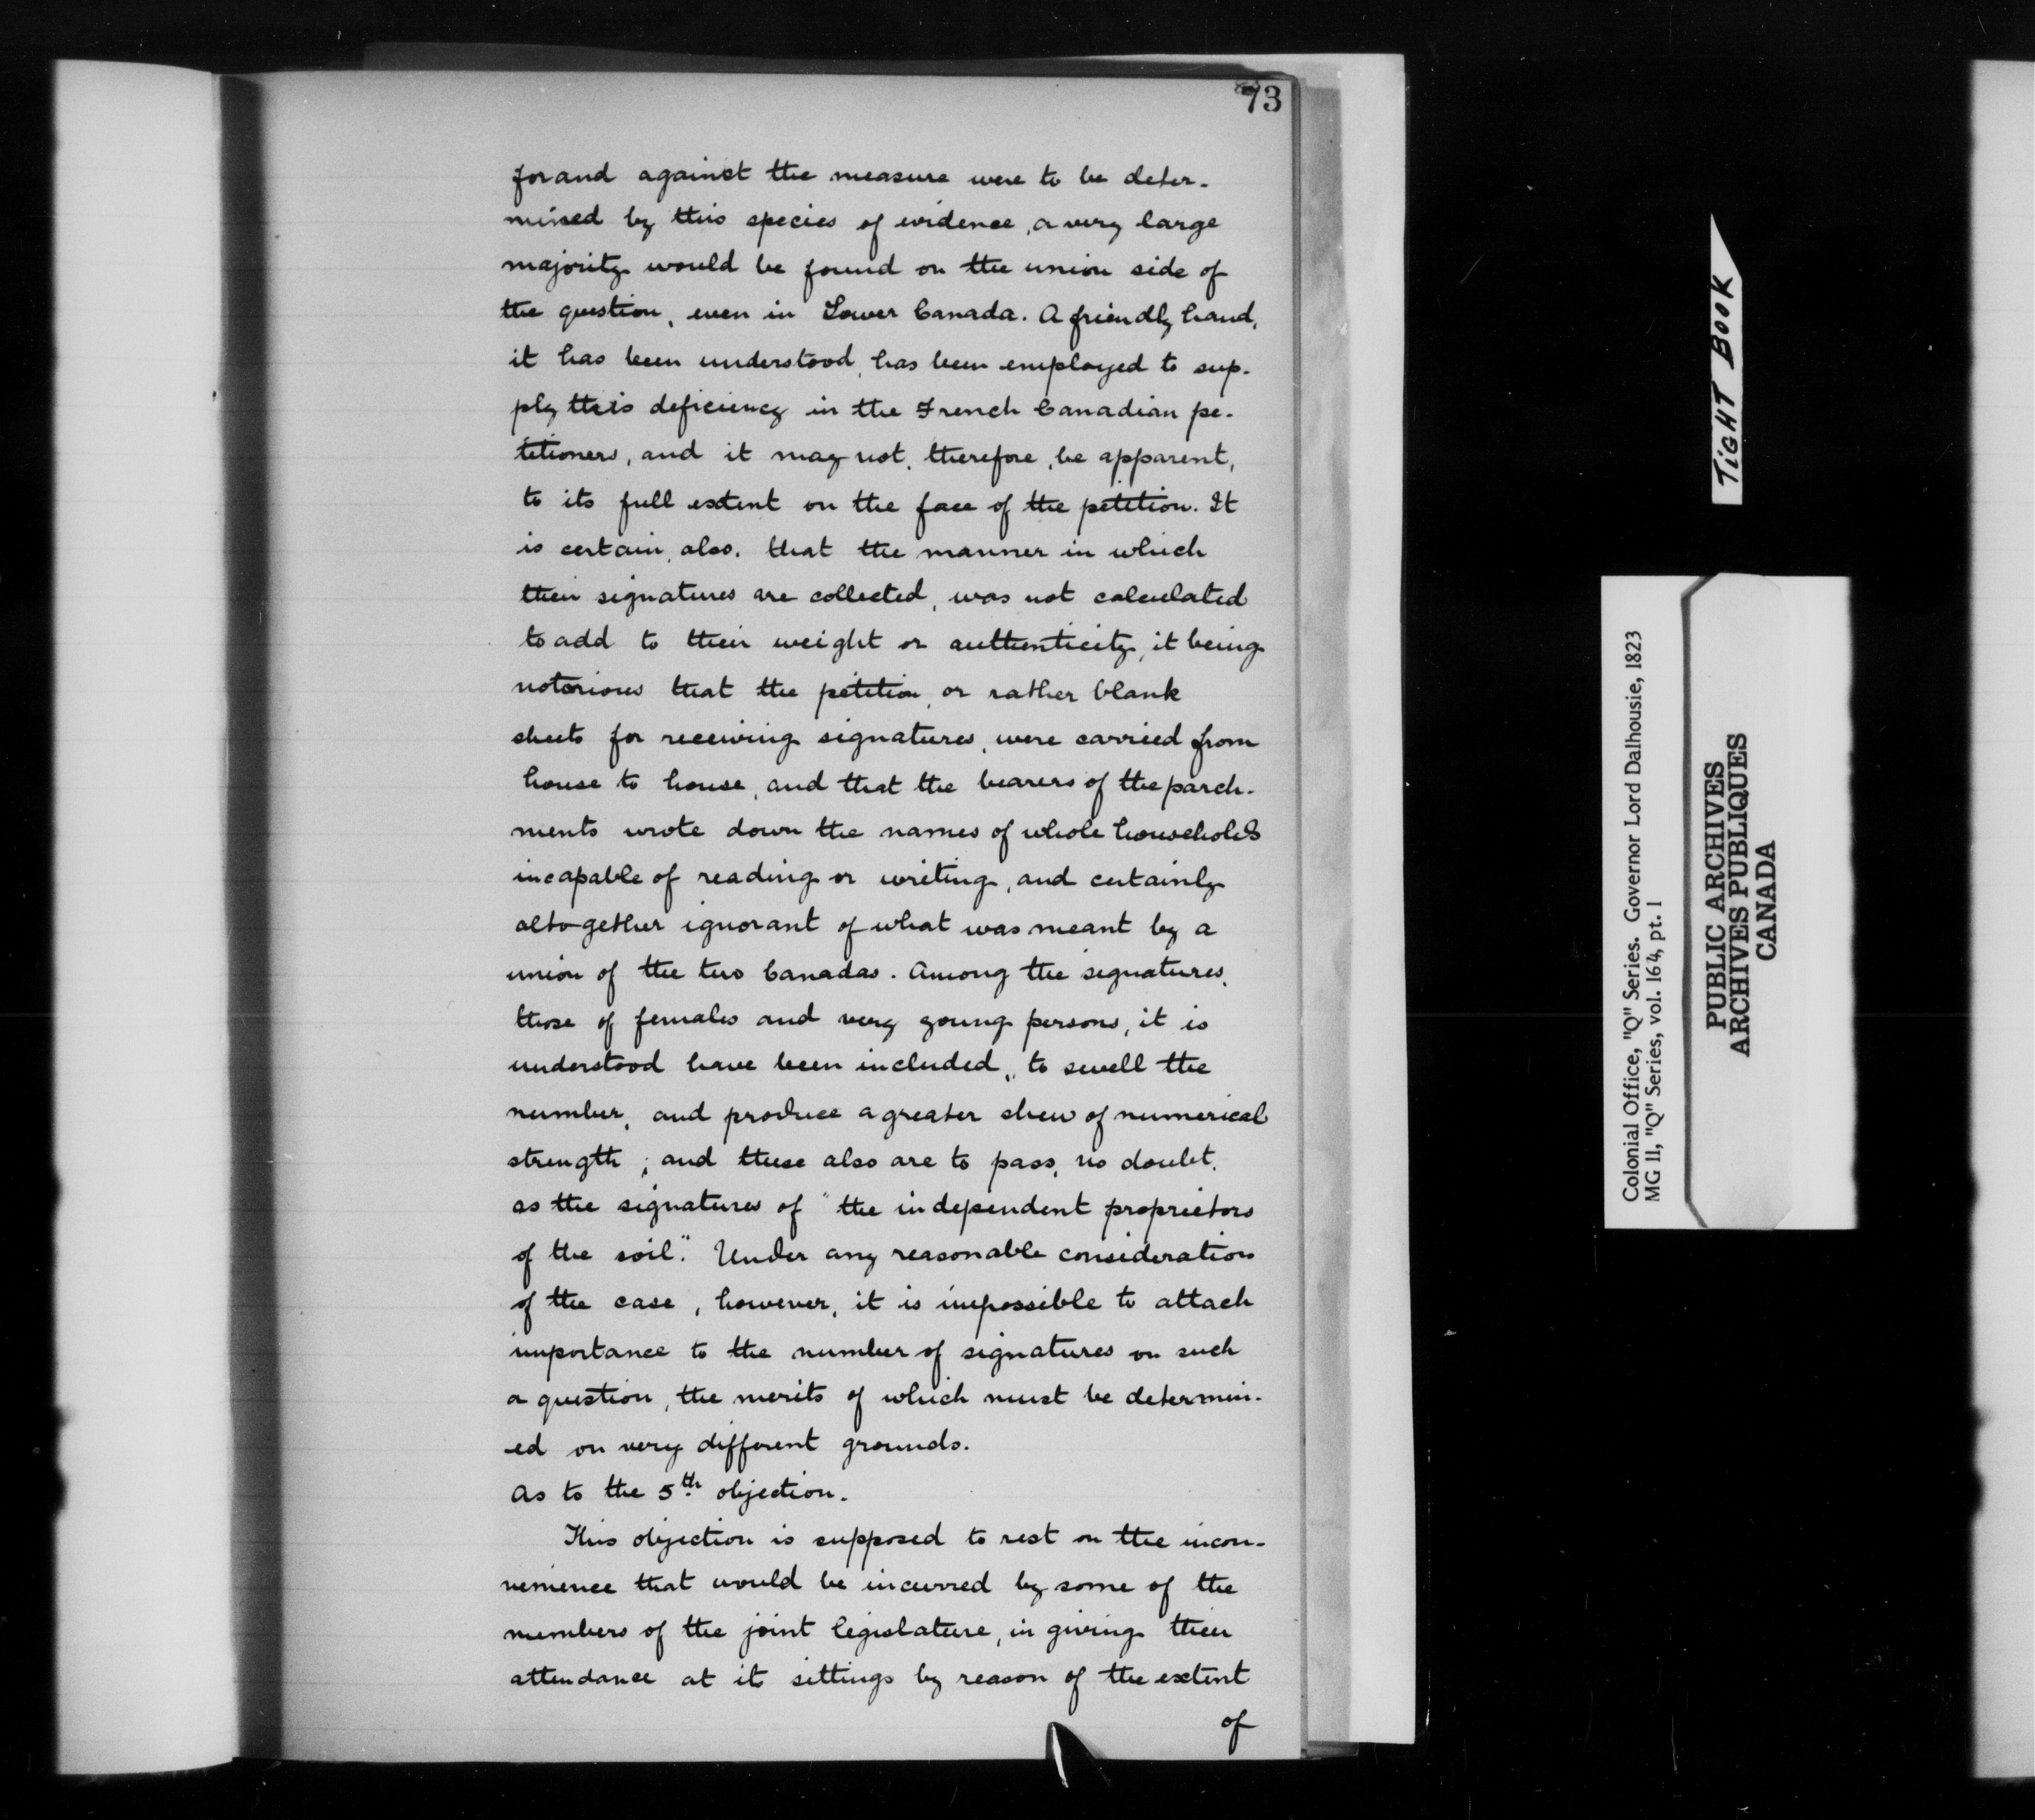 73
for and against the measure were to be deter-
mined by this species of evidence, a very large
majority would be found on the union side of
the question, even in Lower Canada. A friendly hand,
it has been understood, has been employed to sup-
ply this deficiency in the French Canadian pe-
titioners, and it may not, therefore, be apparent,
to its full extent on the face of the petition. It
is certain, also, that the manner in which
their signatures are collected, was not calculated
to add to their weight or authenticity, it being
notorious that the petition, or rather blank
sheets for receiving signatures, were carried from
house to house, and that the bearers of the parch-
ments wrote down the names of whole households
incapable of reading or writing, and certainly
altogether ignorant of what was meant by a
union of the two Canadas. Among the signatures,
those of females and very young persons, it is
understood have been included, to swell the
number, and produce a greater shew of numerical
strength; and these also are to pass, no doubt,
as the signatures of "the independent proprietors
of the soil." Under any reasonable consideration
of the case, however, it is impossible to attach
importance to the number of signatures on such
a question, the merits of which must be determin-
-ed on very different grounds.
As to the 5th objection.
This objection is supposed to rest on the incon-
venience that would be incurred by some of the
members of the joint legislature, in giving their
attendance at it sittings by reason of the extent
of
TIGHT BOOK
Colonial Office, "Q" Series. Governor Lord Dalhousie, 1823
MG 11, "Q" Series, vol. 164, pt. 1
PUBLIC ARCHIVES
ARCHIVES PUBLIQUES
CANADA